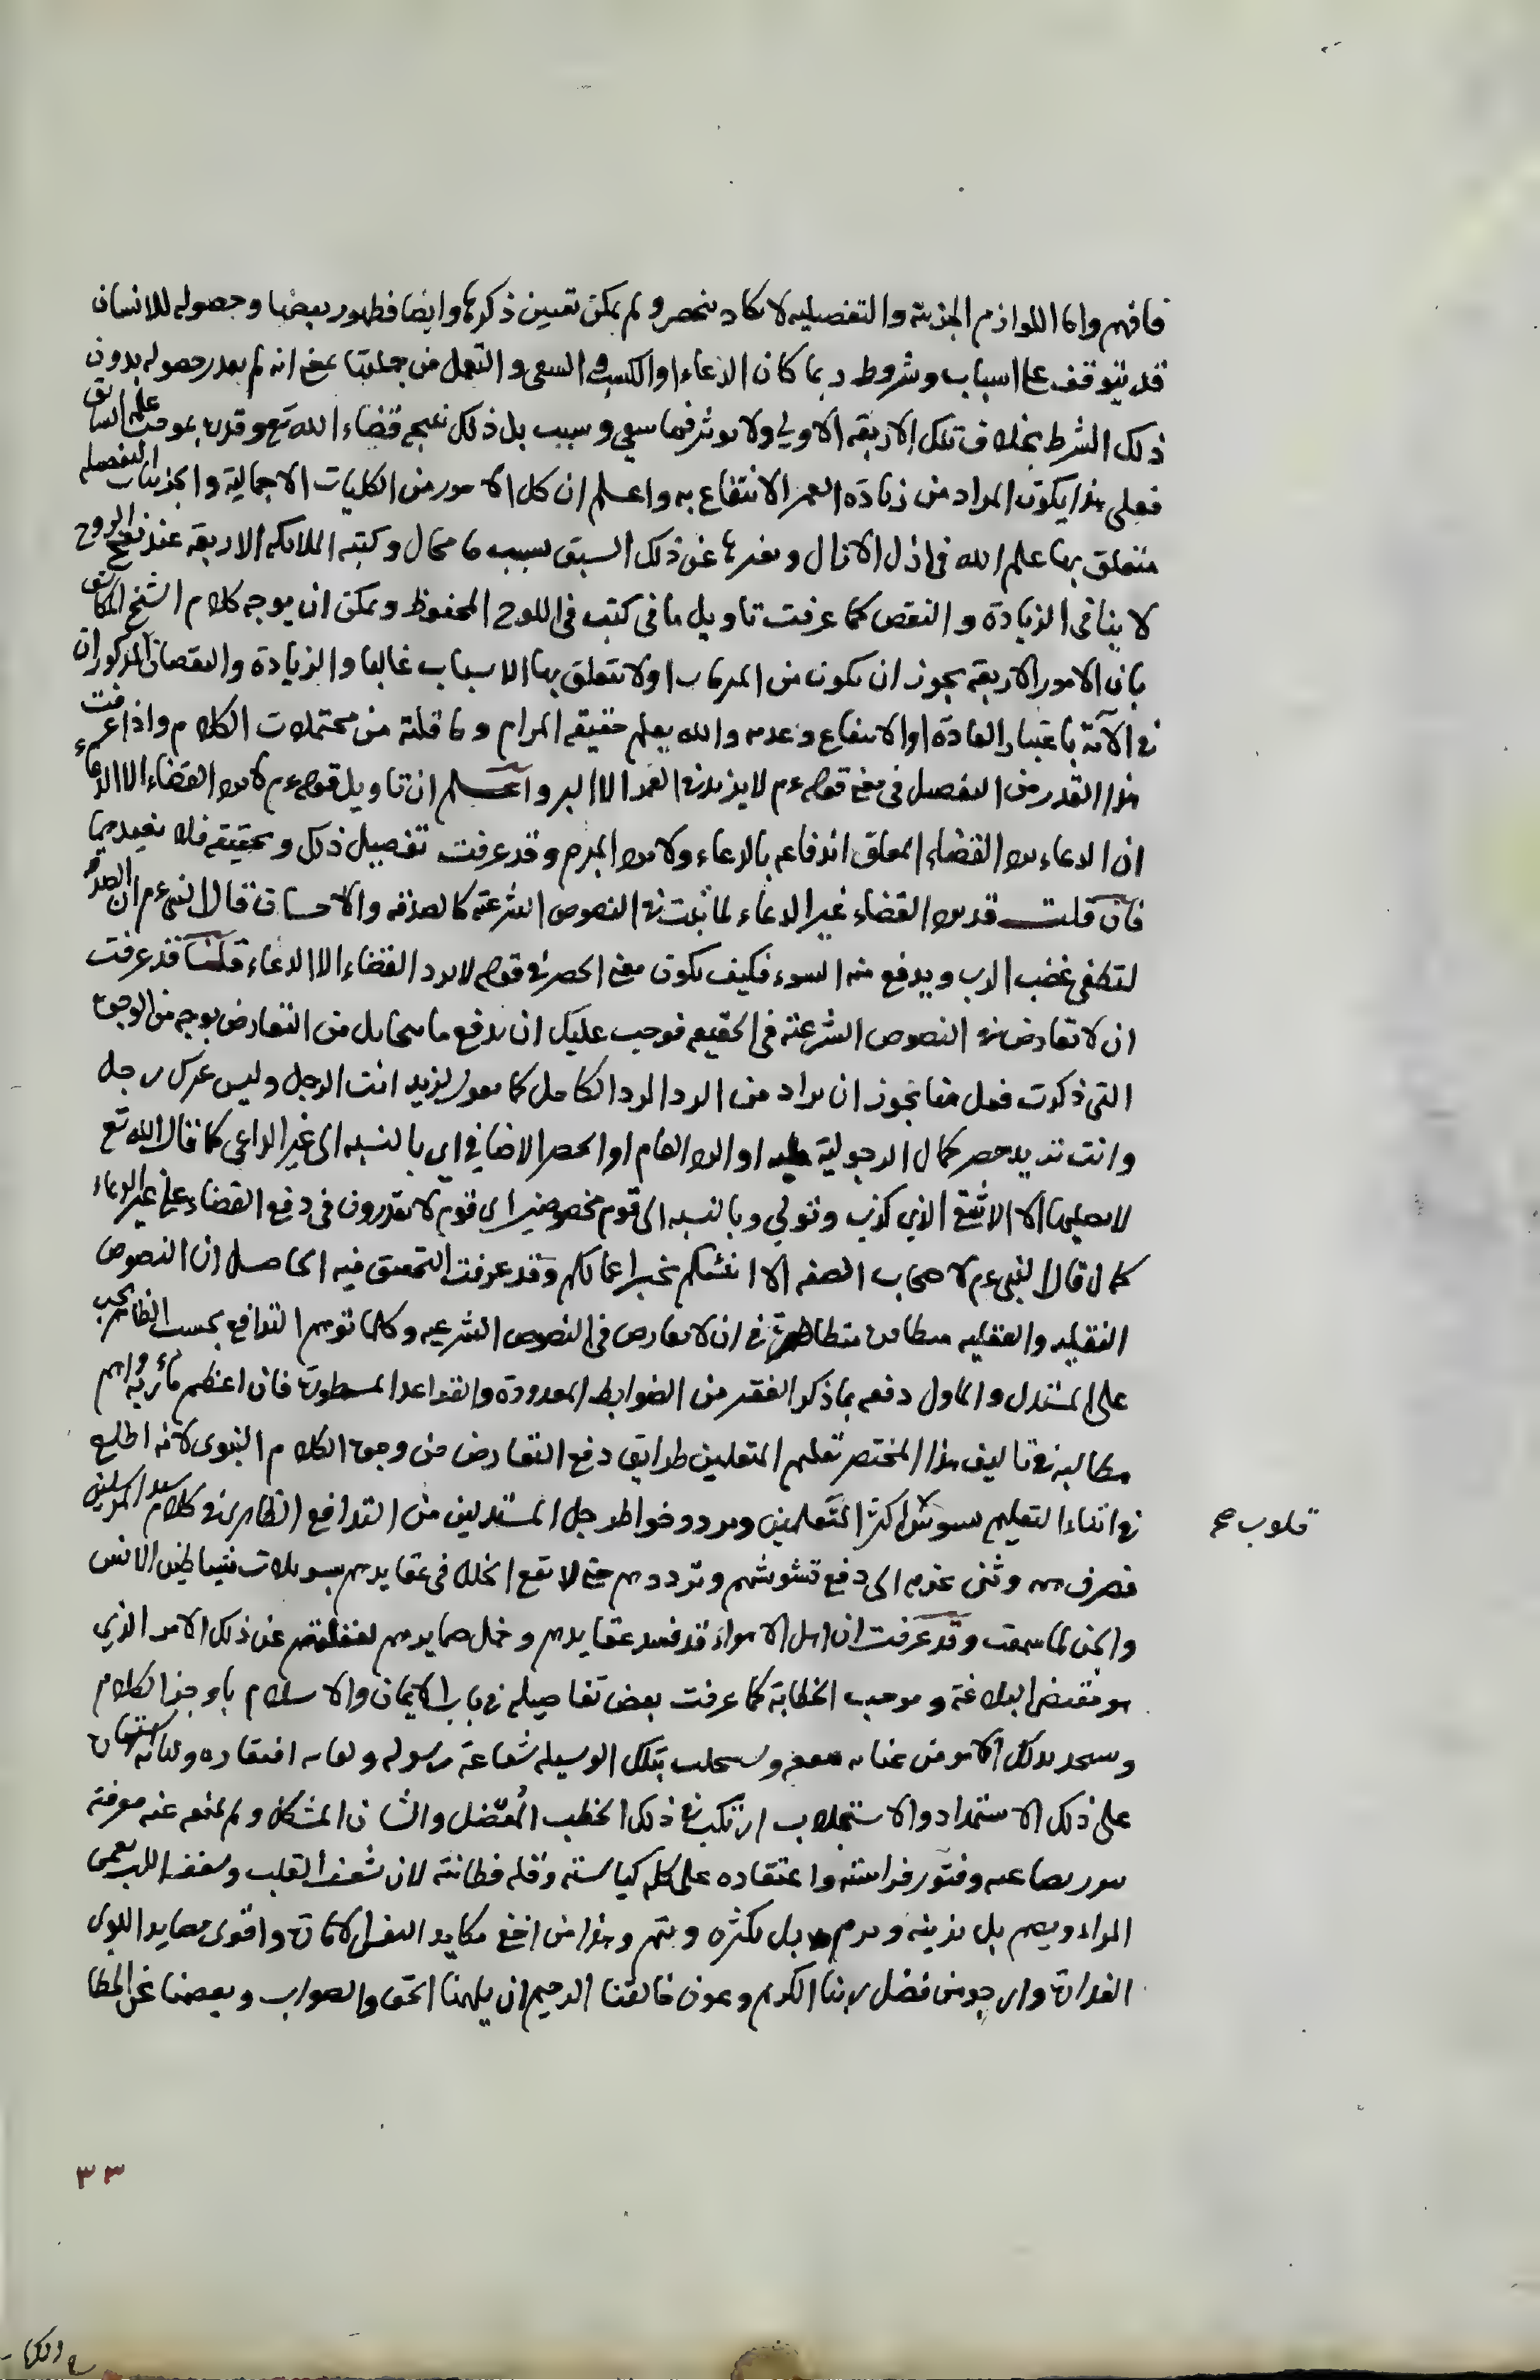 فافهم واما اللوازم الجزئية والتفصيليه لا يكاد ينحصر ولم يمكن تعيين ذكرها وايضا فظهور بعضها وحصوله للانسان
قد يتوقف على اسباب وشروط ربما كان الدعاء او الكسب والسعى والتعمل من جملتها بمعنى انه لم يقدر حصوله بدون
ذلك الشرط بخلاف تلك الاربعة الاولى ولا يوثر فيها سعى وسبب بل ذلك نتيجة قضاء الله تع وقدره بموجب علمه السابق
فعلى هذا يكون المراد من زيادة العمر الانتفاع به واعلم ان كل الامور من الكليات الاجمالية والجزئيات التفصيليه
متعلق بها علم الله فى ازل الازال وتغيرها عن ذلك السبق بسبب ما محال وكتبه الملائكه الاربعه عند نفخ الروح
لا ينافى الزيادة والنقص كما عرفت تاويل ما فى كتب فى اللوح المحفوظ ويمكن ان يوجه كلام الشيخ المكاشف
بان الامور الاربعة يجوز ان تكون من المبرمات او لا تتعلق بها الاسباب غالبا والزيادة والنقصان المذكوران
فى الآية باعتبار العادة او الانتفاع وعدمه والله يعلم حقيقه المرام وما قلته من محتملات الكلام واذا عرفت
هذا القدر من التفصيل فى معنى قوله عم لا يزيد فى العمر الا البر واعلم ان تاويل قوله عم لا يرد القضاء الا الدعاء
ان الدعاء يرد القضاء المعلق اندفاعه بالدعاء ولا يرد المبرم وقد عرفت تفصيل ذلك وتحقيقه فلا نعيدهما
فان قلت قد يرد القضاء غير الدعاء لما ثبت فى النصوص الشرعية كالصدقه والاحسان قال النبى عم ان الصدقه
لتطفى غضب الرب ويدفع ميتة السوء فكيف يكون معنى الحصر فى قوله لا يرد القضاء الا الدعاء قلنا قد عرفت
ان لا تعارض فى النصوص الشرعية فى الحقيقه فوجب عليك ان تدفع ما يتخايل من التعارض بوجه من الوجوه
التى ذكرت فعل هنا يجوز ان يراد من الرد الرد الكامل كما تقول لزيد انت الرجل وليس غيرك رجل
وانت تريد حصر كمال الرجولية او الرد العام او الحصر الاضافي اي بالنسبه الى غير الداعى كما قال الله تع
لا يصليها الا الاشقى الذي كذب وتولى وبالنسبه الى قوم مخصوصين اى قوم لا يقدرون فى دفع القضاء على غير الدعاء
كما قال النبى عم لاصحاب الصفه الا انبئكم بخير اعمالكم وقد عرفت التحقيق فيه الحاصل ان النصوص
النقليه والعقليه متطابقة متظاهرة فى ان لا تعارض فى النصوص الشرعيه وكلما توهم التدافع بحسب الظاهر يجب
على المستدل والماول دفعه بما ذكر الفقير من الضوابط المعدودة والقواعد المسطورة فان اعظم مآربه واهم
مطالبه فى تاليف هذا المختصر تعليم المتعلمين طرايق دفع التعارض من وجوه الكلام النبوى لانه اطلع
فى اثناء التعليم تشوش اكثر المتعلمين وتردد خواطر جل المستدلين من التدافع الظاهرى فى كلام سيد المرسلين
قلوب صح
فصرف همه وثنى عزمه الى دفع تشوشهم وترددهم حتى لا تقع الخلل فى عقايدهم بتسويلات شياطين الانس
والجن لما سمعت وقد عرفت ان اهل الاهواء قد فسد عقايدهم لغفلتهم عن ذلك الامر الذي
هو مقتضى البلاغة وموجب الخطابة كما عرفت بعض تفاصيله فى باب الايمان والاسلام باوجز الكلام
بتلك الوسيله شفاعة رسوله
على ذلك الاستمداد والاستجلاب ارتكب فى ذلك الخطب المعضل والشان المشكل ولم يمنعه عنه معرفته
وفتور فراسته واعتقاده على كله كياسته وقله فطانته لان شعف القلب
المراد ويصم بل يزينه بل يكثره ويتم وهذا من اخفى مكايد النفس الامارة واقوى مصايد الهوى
الغدارة وارجو من فضل ربنا الكريم وعون خالقنا الرحيم ان يلهمنا الحق والصواب ويعصمنا عن الخطا
٣٣